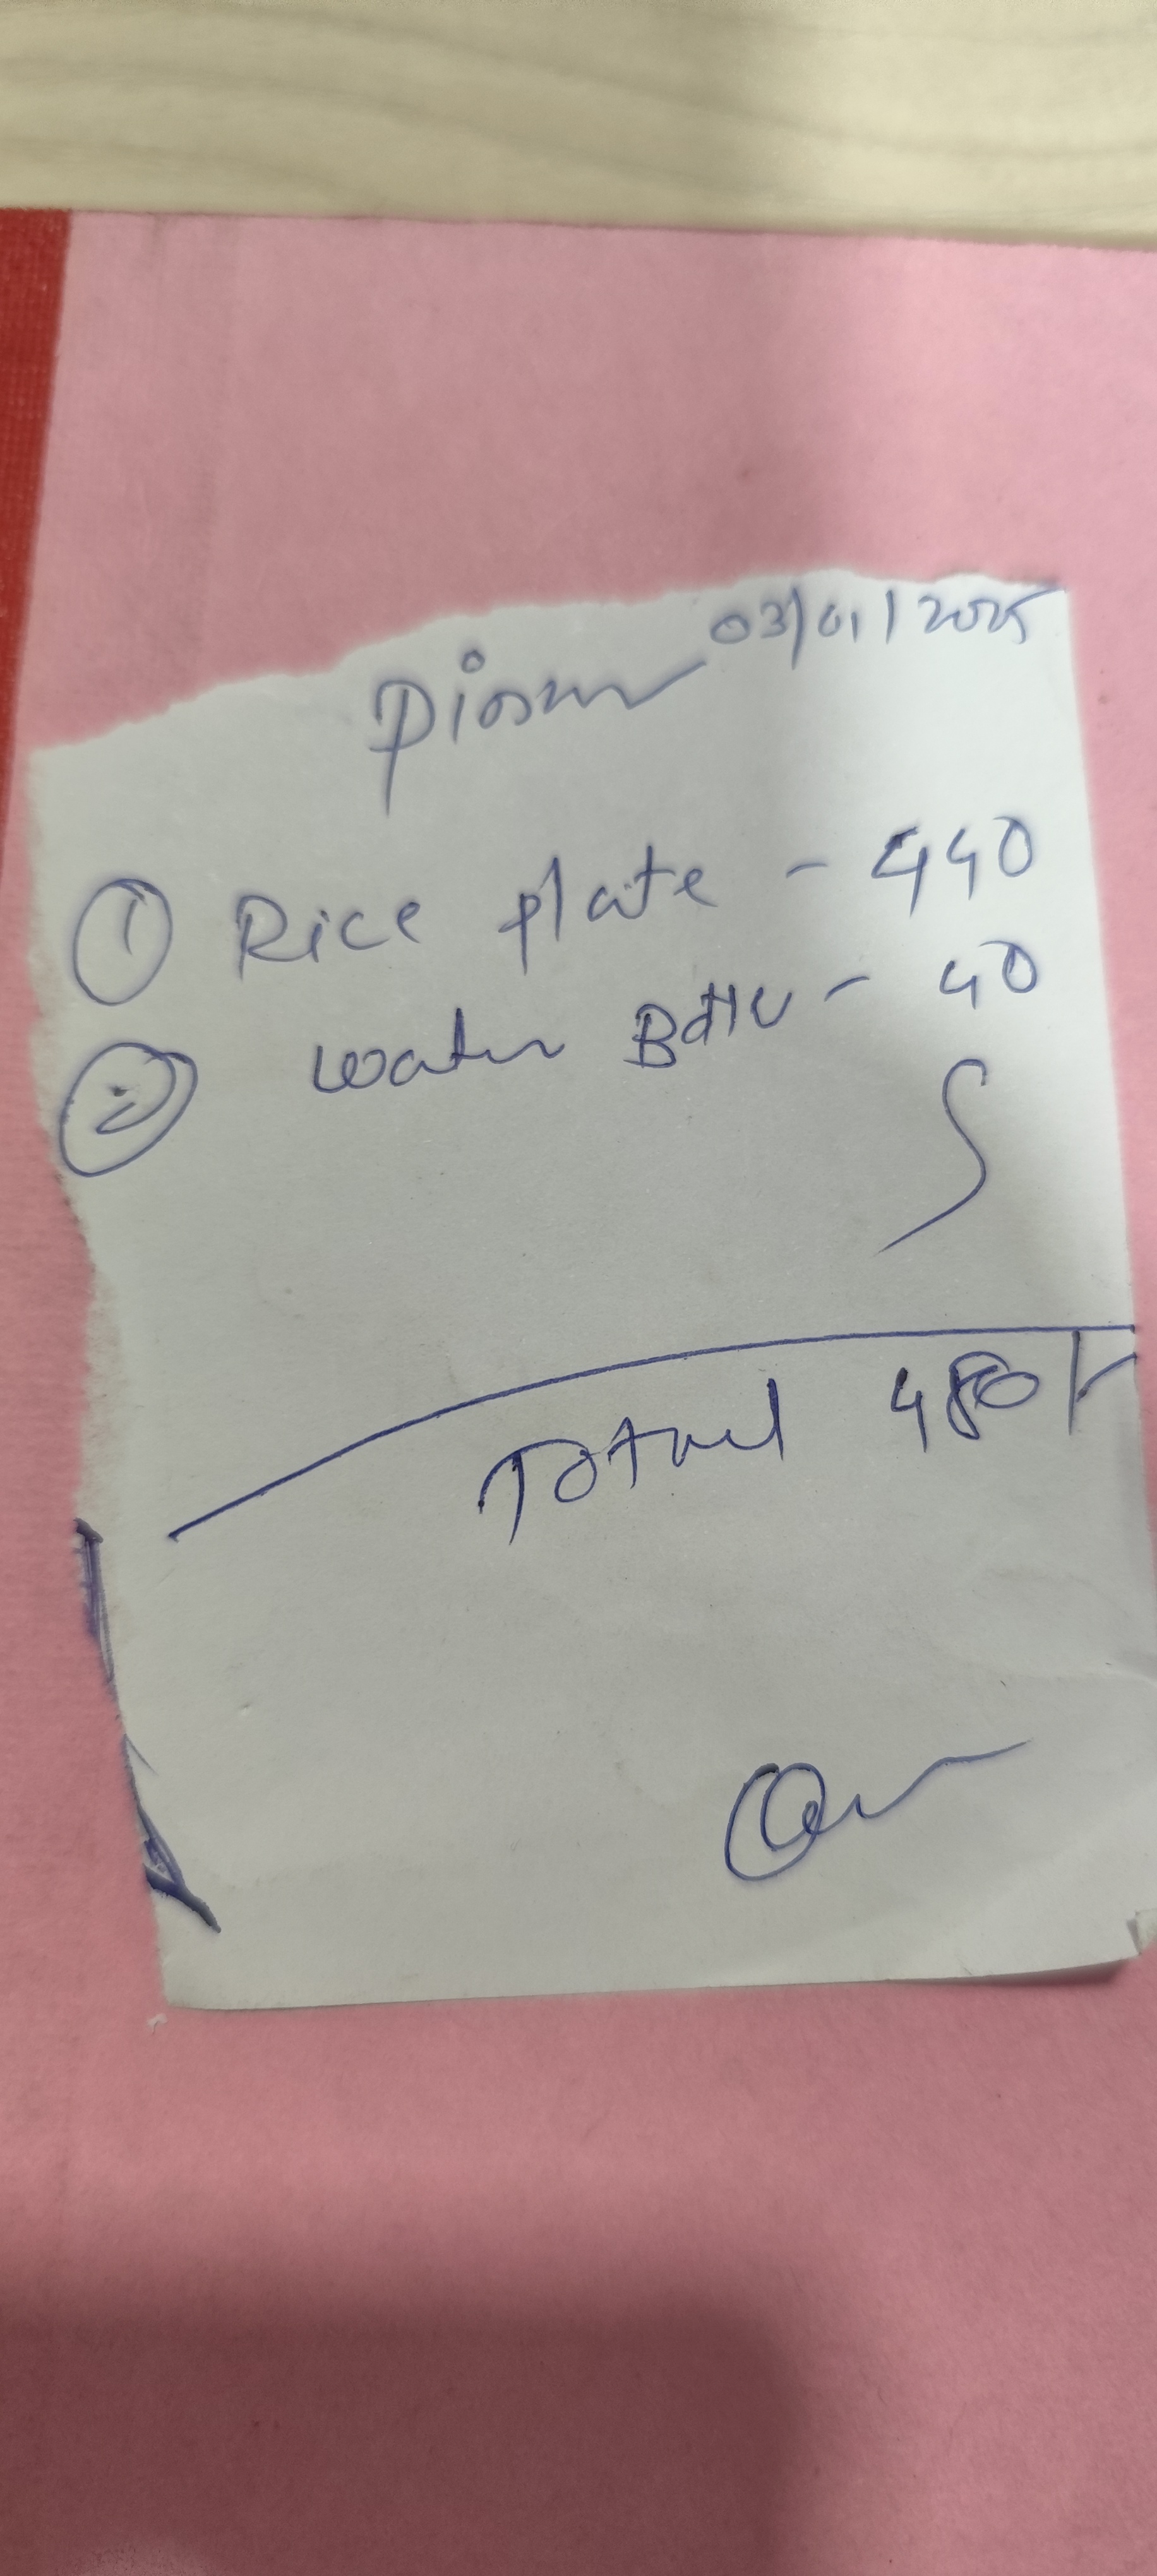 03/01/2025
Dinner
① Rice plate - 440
② Water Bottle - 40
Total 480/-